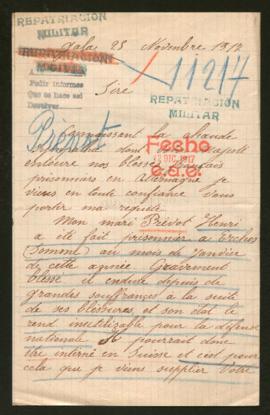 REPATRIACION
MILITAR
28 Novembre 1917
REPATRIACION
MILITAR
Pedir informes
Que se hace sed
11217
REPATRIACION
MILITAR
Sire
Prévot
Connaissant la
dont Votre
entoure nos blessés français
prisonniers en Allemagne je
viens en toute confiance vous
porter ma requête.
Fecho
DIC. 1917
Mon mari Prévot Henri
a été fait prisonnier à Erches
(Somme) au mois de
de cette année. Gravement
blessé il endure depuis de
grandes souffrances à la suite
de ses blessures, et son état le
rend inutilisable pour la défense
nationale. Il pourrait donc
être interné en Suisse et c'est pour
cela que je viens supplier Votre